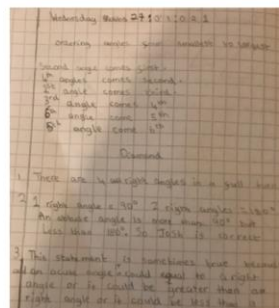 Wednesday 27:01:021
ordering angles from smallest to largest
Second angle comes first.
4th angles comes second.
1st angle comes third.
3rd angle comes 4th
6th angle come 5th
5th angle come 6th
Diamond
1. There are 4 right angles in a full turn
2. 1 right angle = 90° 2 right angles = 180°
An obtuse angle is more than 90° but
Less than 180°. So Josh is correct
3. This statement is sometimes true because
an acute angle could equal to a right
angle or it could be greater than a
right angle or it could be less than